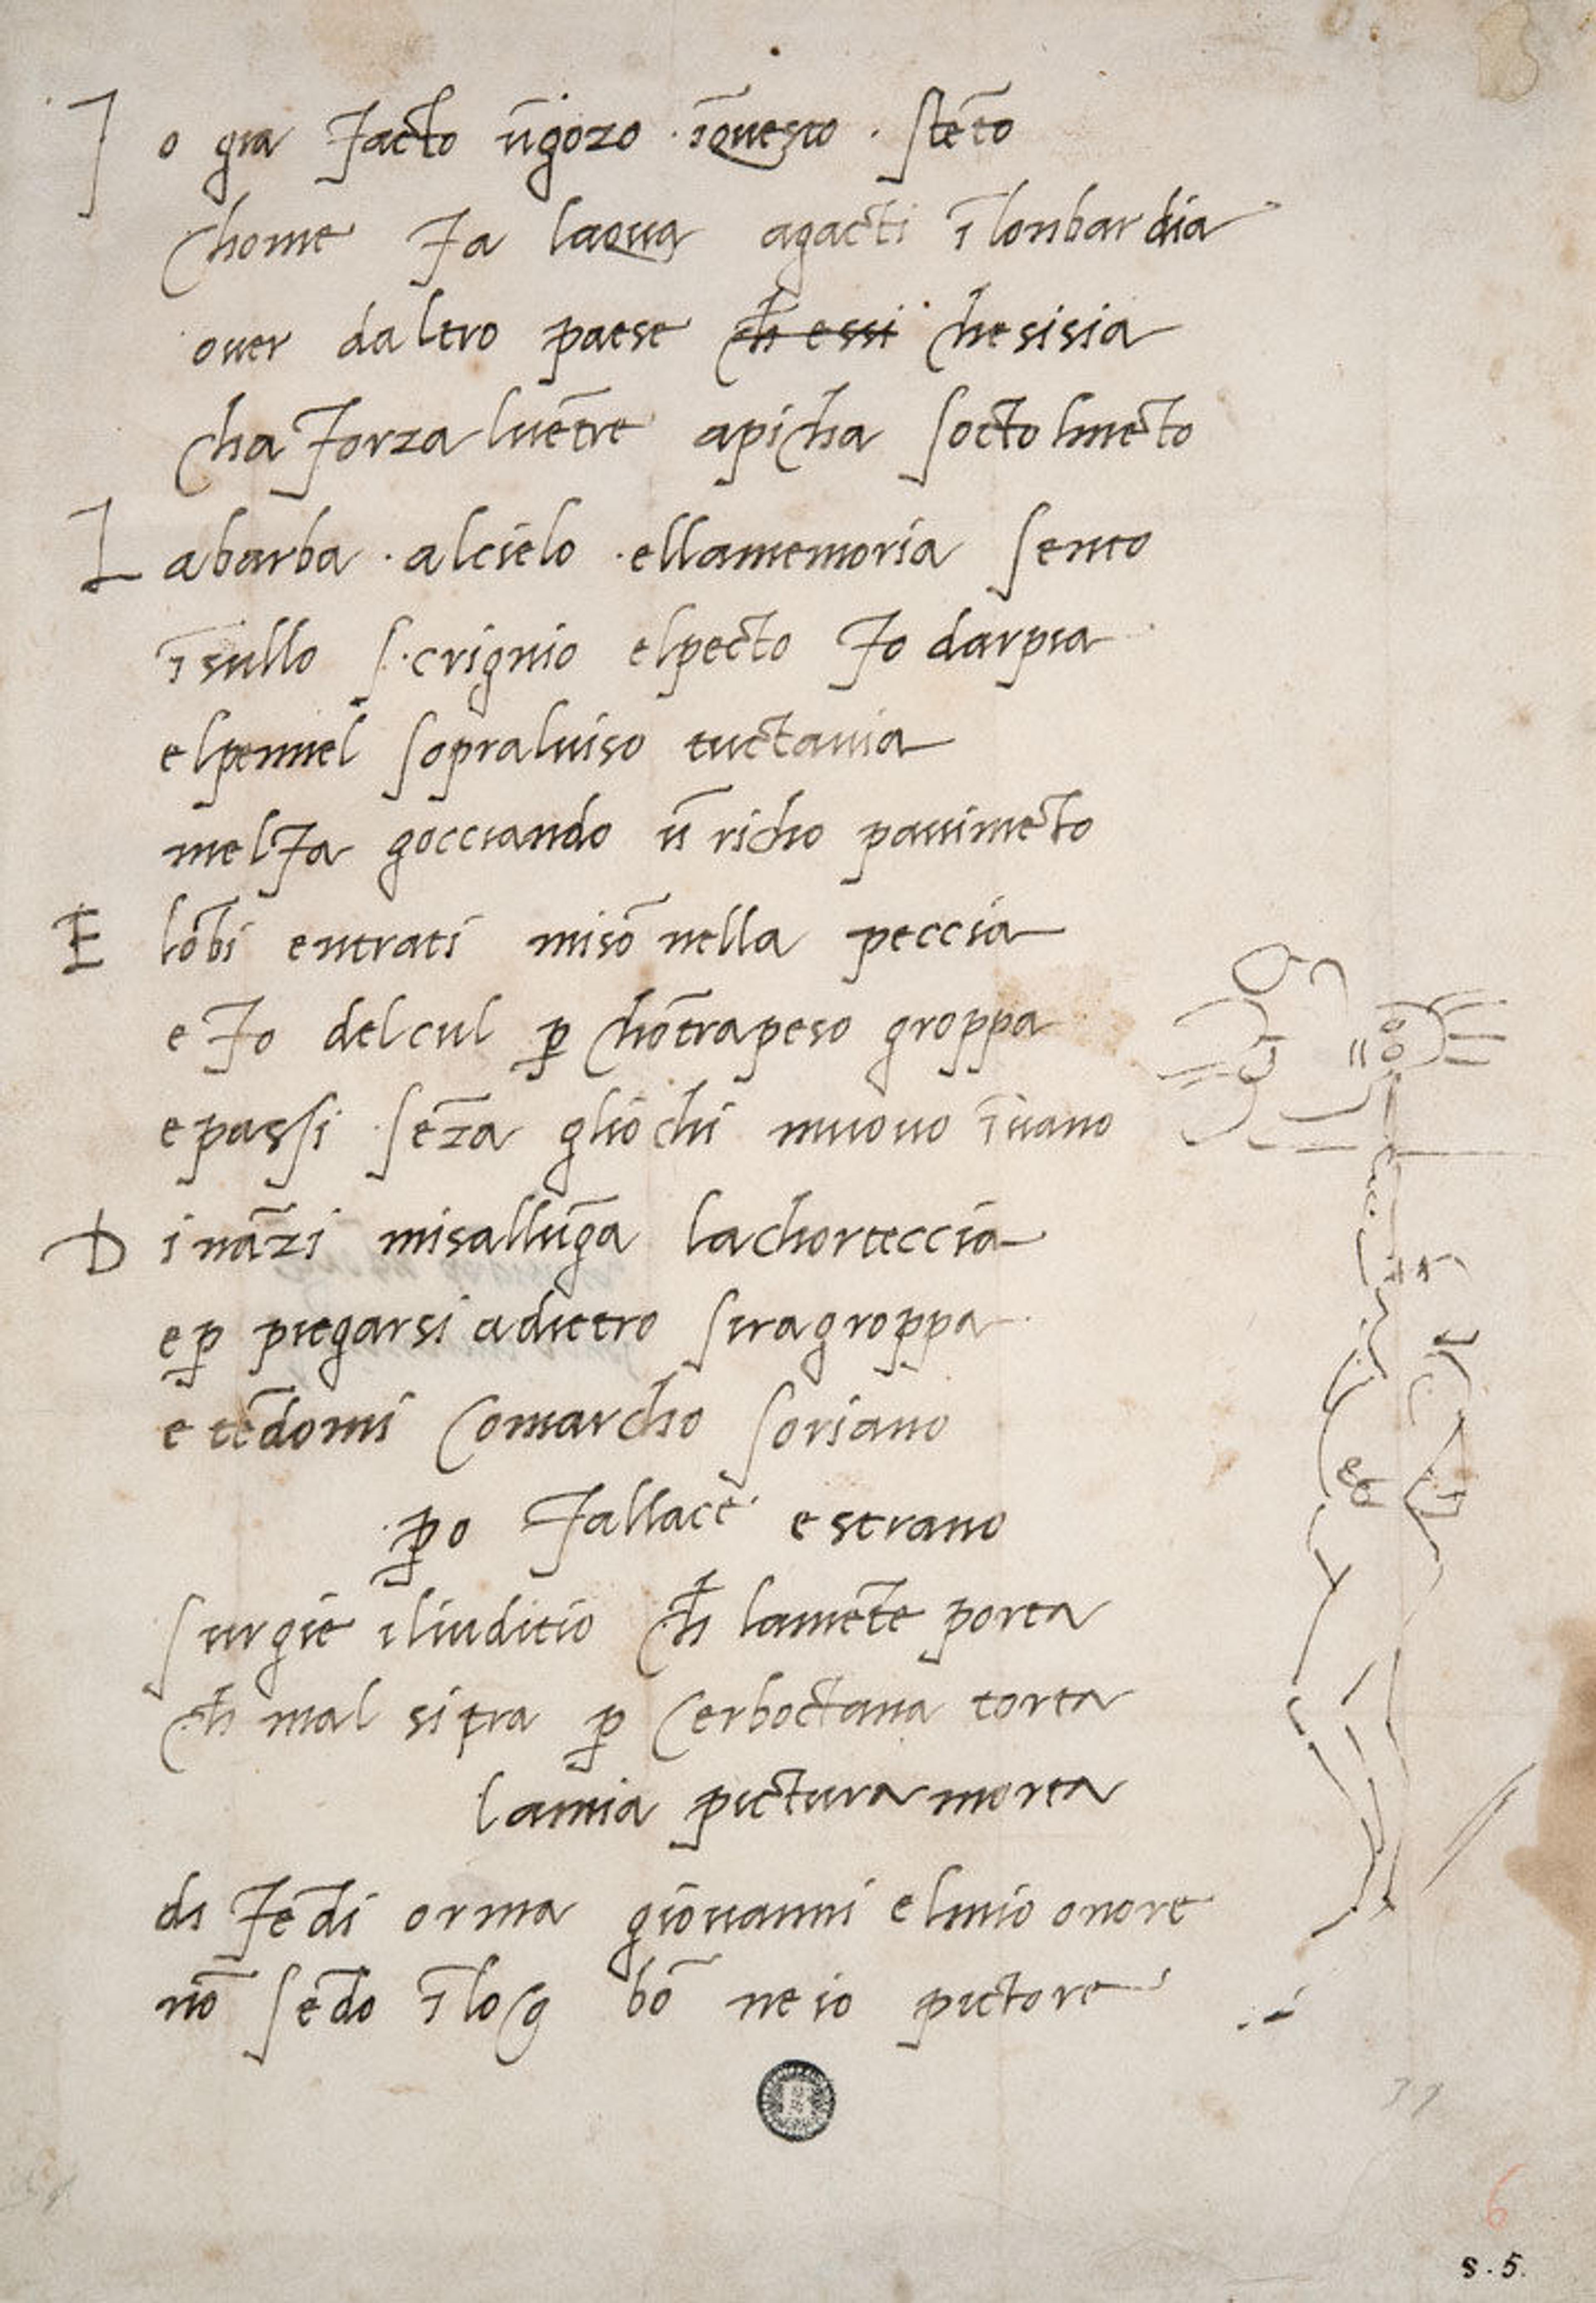 I o gia facto ūgozo · īquesto · stēto
chome fa laqua agacti ī lonbardia
over daltro paese ch̄ essi chesisia
cha forza lvētre apicha socto lmēto
L abarba · alcielo · ellamemoria sento
īsullo scrignio elpecto fo darpia
elpennel sopralviso tuctavia
melfa gocciando ū richo pavimēto
E lōbi entrati misō nella peccia
e fo delcul p̱ chōtrapeso groppa
epassi sēza gliochi muovo īvano
D inā̄zi misallūga lachorteccia
ep̱ piegarsi adietro siragroppa
e tēdomi comarcho soriano
p̱o fallace estrano
surgie iliuditio ch̄ lamēte porta
ch̄ mal si tra p̱ cerboctana torta
lamia pictura morta
di fēdi orma giovanni elmio onore
nō sēdo īlog bō ne io pictore
6
s.5.